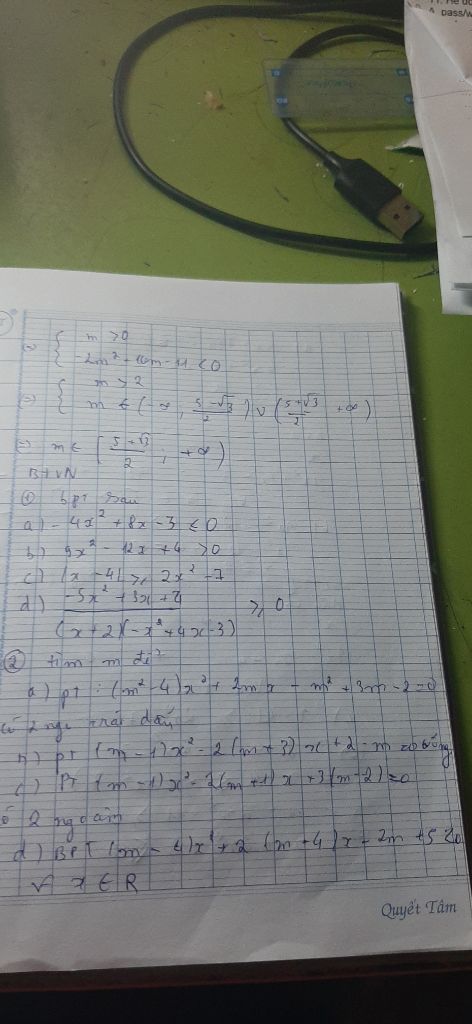 pass/w
⇒ { m > 0
-2m² - 10m - 11 < 0
⇒ { m > 2
m ∈ (-∞, (5-√3)/2) ∪ ((5+√3)/2, +∞)
⇒ m ∈ [(5+√3)/2; +∞)
BTVN
① bpt sau
a) -4x² + 8x - 3 ≤ 0
b) 9x² - 12x + 4 > 0
c) |x - 4| ≥ 2x² - 7
d) (-5x² + 3x + 2)/((x+2)(-x²+4x-3)) ≥ 0
② tìm m để
a) pt: (m²-4)x² + 2mx - m² + 3m - 2 = 0
có 2 ngo trái dấu
b) pt (m-1)x² - 2(m+3)x + 2 - m = 0
c) PT (m-1)x² - 2(m+1)x + 3(m-2) = 0
2 ngo âm
d) BPT (m-4)x² + 2(m+4)x - 2m + 5 < 0
∀ x ∈ R
Quyết Tâm